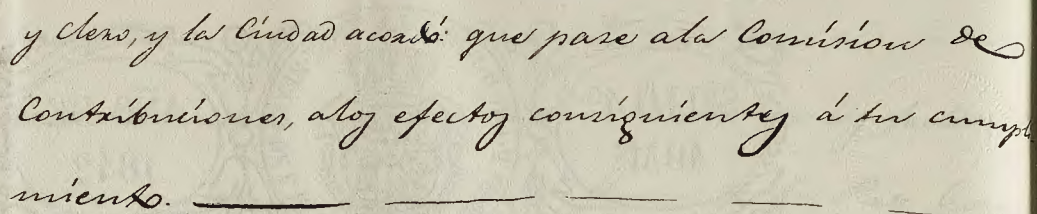 y clero, y la Ciudad acordó: que pase ala Comision de
Contribuciones, alos efectos consiguientes á su cumpli
miento.